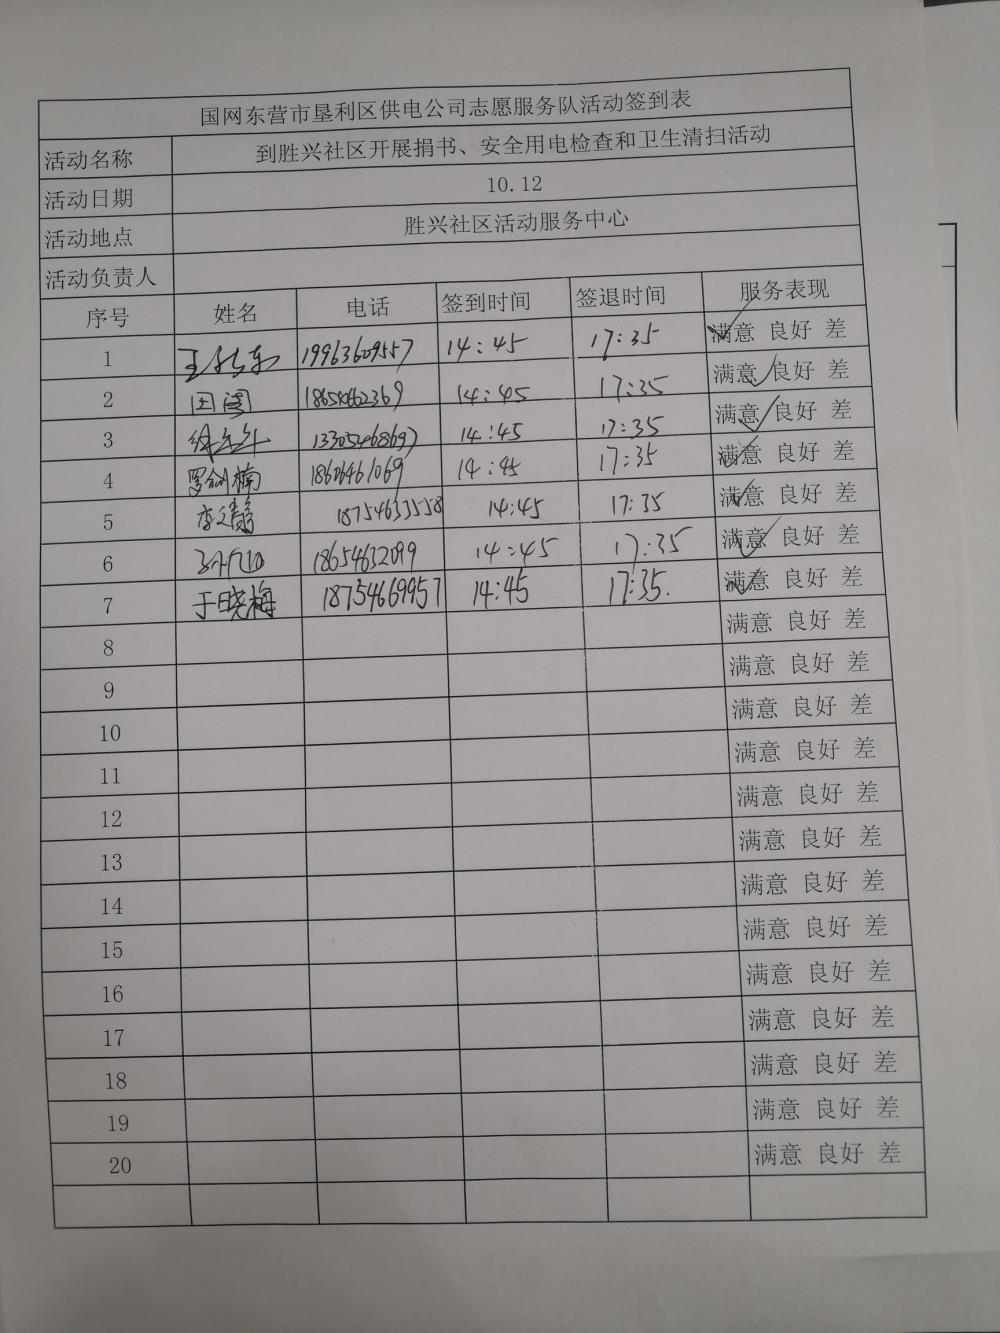 国网东营市垦利区供电公司志愿服务队活动签到表
活动名称 到胜兴社区开展捐书、安全用电检查和卫生清扫活动
活动日期 10.12
活动地点 胜兴社区活动服务中心
活动负责人
序号 姓名 电话 签到时间 签退时间 服务表现
1 19963609557 14:45 17:35 满意 良好 差
2 14:45 17:35 满意 良好 差
3 14:45 17:35 满意 良好 差
4 14:45 17:35 满意 良好 差
5 18754633558 14:45 17:35 满意 良好 差
6 18654632099 14:45 17:35 满意 良好 差
7 于晓梅 18754669957 14:45 17:35. 满意 良好 差
8 满意 良好 差
9 满意 良好 差
10 满意 良好 差
11 满意 良好 差
12 满意 良好 差
13 满意 良好 差
14 满意 良好 差
15 满意 良好 差
16 满意 良好 差
17 满意 良好 差
18 满意 良好 差
19 满意 良好 差
20 满意 良好 差